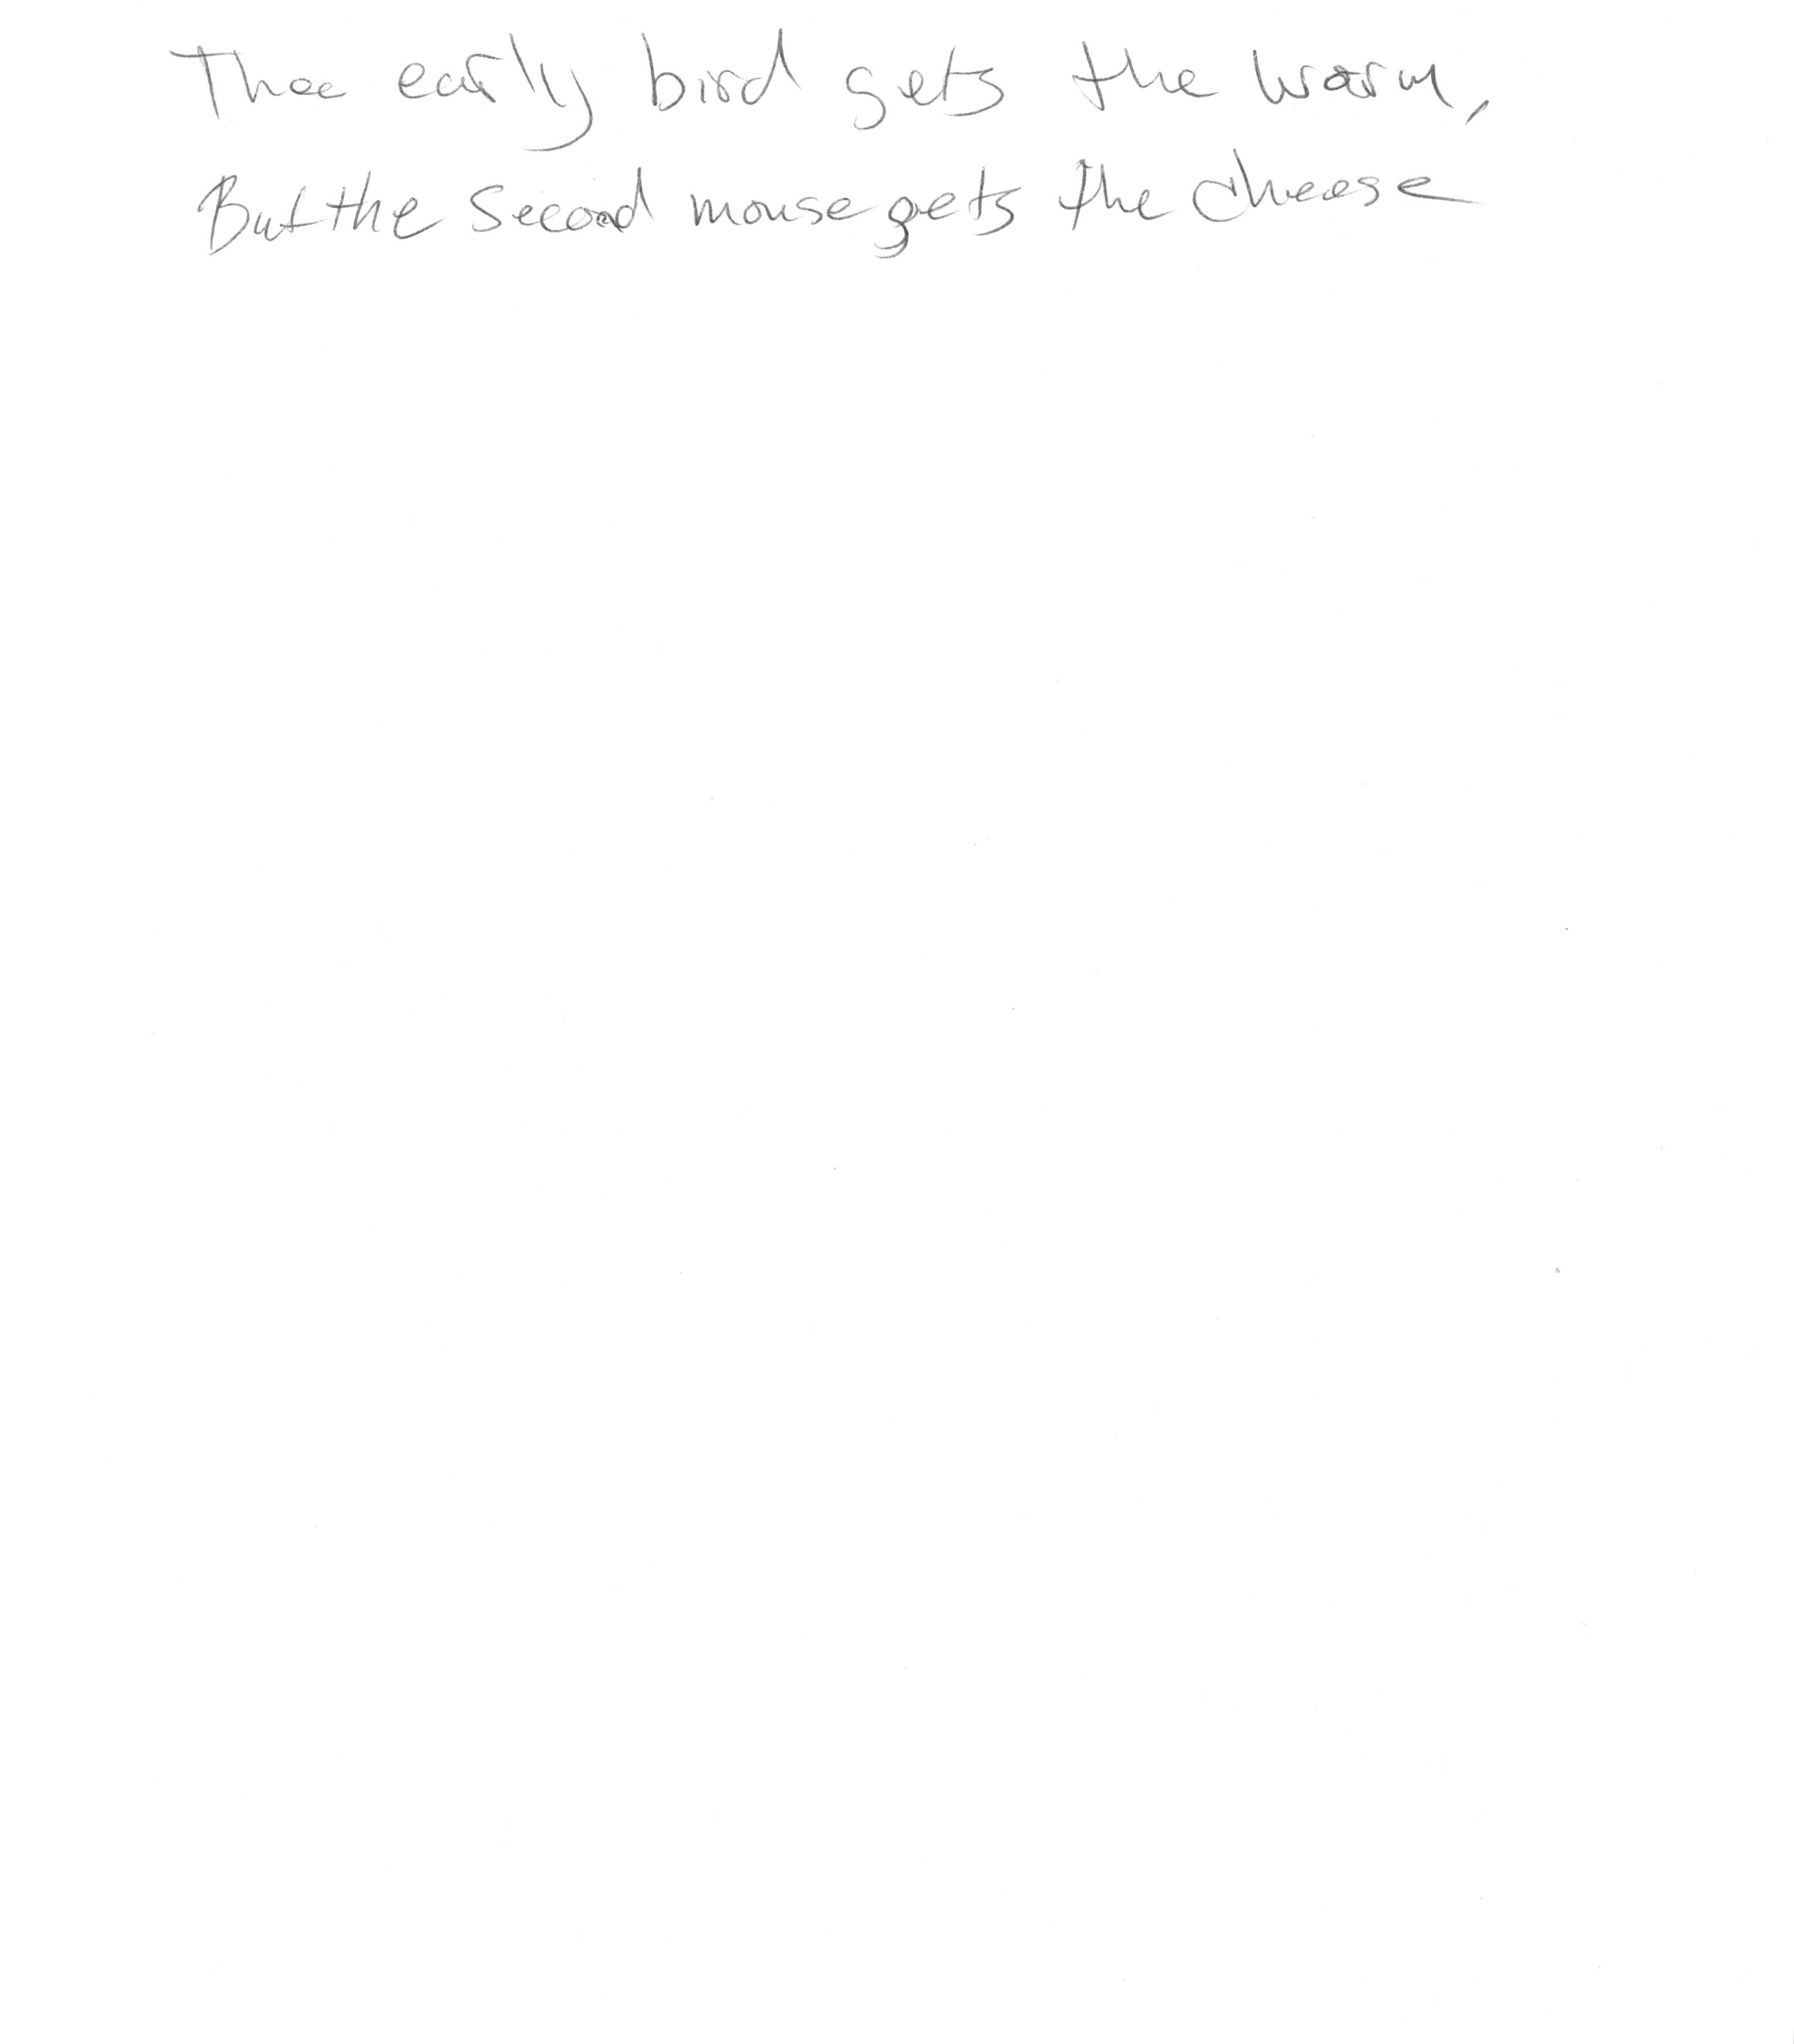 Thee early bird gets the warm,
But the Second mouse gets the cheese